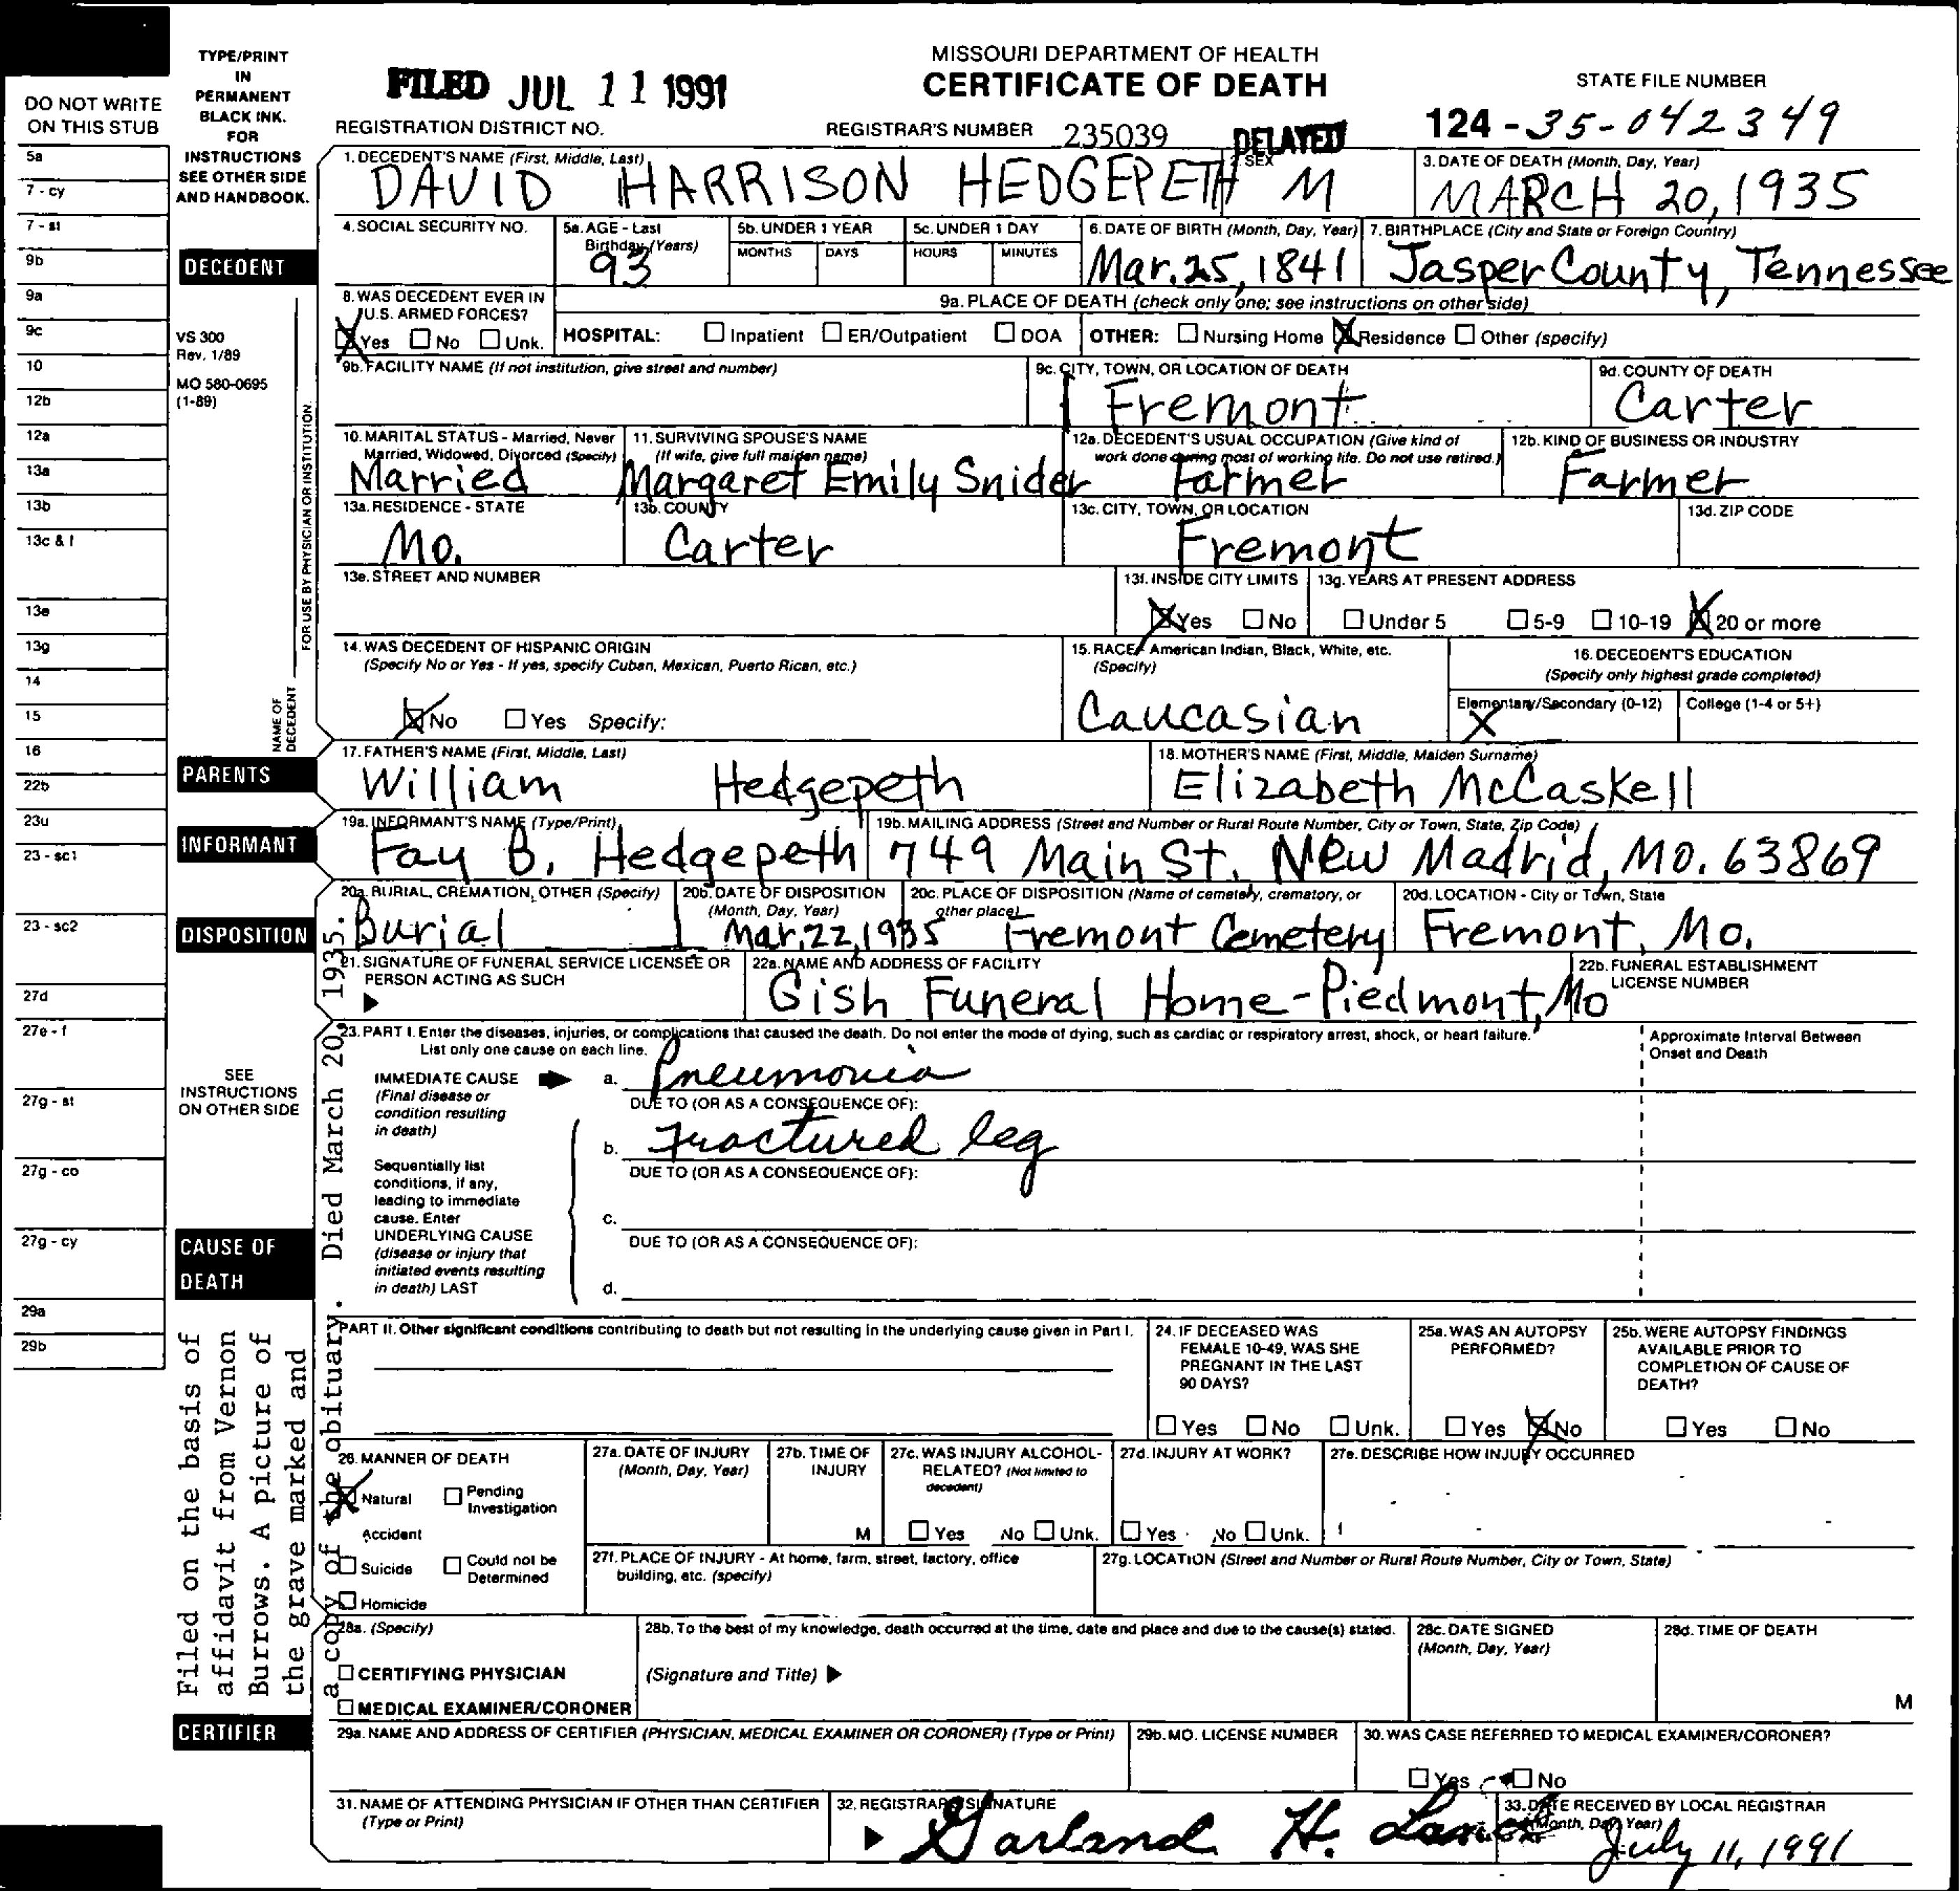 MISSOURI DEPARTMENT OF HEALTH
CERTIFICATE OF DEATH
FILED JUL 11 1991
STATE FILE NUMBER
124 - 35-042349
REGISTRATION DISTRICT NO.
REGISTRAR'S NUMBER 235039
DELAYED
TYPE/PRINT
IN
PERMANENT
BLACK INK.
FOR
INSTRUCTIONS
SEE OTHER SIDE
AND HANDBOOK.
DO NOT WRITE
ON THIS STUB
5a
7 - cy
7 - st
9b
9a
9c
10
12b
12a
13a
13b
13c & f
13e
13g
14
15
16
22b
23u
23 - sc1
23 - sc2
27d
27e - f
27g - st
27g - co
27g - cy
29a
29b
DECEDENT
VS 300
Rev. 1/89
MO 580-0695
(1-89)
FOR USE BY PHYSICIAN OR INSTITUTION
NAME OF
DECEDENT
1. DECEDENT'S NAME (First, Middle, Last)
DAVID HARRISON HEDGEPETH
2. SEX
M
3. DATE OF DEATH (Month, Day, Year)
MARCH 20, 1935
4. SOCIAL SECURITY NO.
5a. AGE - Last
Birthday (Years)
93
5b. UNDER 1 YEAR
MONTHS DAYS
5c. UNDER 1 DAY
HOURS MINUTES
6. DATE OF BIRTH (Month, Day, Year)
Mar. 25, 1841
7. BIRTHPLACE (City and State or Foreign Country)
Jasper County, Tennessee
8. WAS DECEDENT EVER IN
U.S. ARMED FORCES?
Yes No Unk.
9a. PLACE OF DEATH (check only one; see instructions on other side)
HOSPITAL: Inpatient ER/Outpatient DOA OTHER: Nursing Home Residence Other (specify)
9b. FACILITY NAME (If not institution, give street and number)
9c. CITY, TOWN, OR LOCATION OF DEATH
Fremont
9d. COUNTY OF DEATH
Carter
10. MARITAL STATUS - Married, Never
Married, Widowed, Divorced (Specify)
Married
11. SURVIVING SPOUSE'S NAME
(If wife, give full maiden name)
Margaret Emily Snider
12a. DECEDENT'S USUAL OCCUPATION (Give kind of
work done during most of working life. Do not use retired.)
Farmer
12b. KIND OF BUSINESS OR INDUSTRY
Farmer
13a. RESIDENCE - STATE
Mo.
13b. COUNTY
Carter
13c. CITY, TOWN, OR LOCATION
Fremont
13d. ZIP CODE
13e. STREET AND NUMBER
13f. INSIDE CITY LIMITS
Yes No
13g. YEARS AT PRESENT ADDRESS
Under 5 5-9 10-19 20 or more
14. WAS DECEDENT OF HISPANIC ORIGIN
(Specify No or Yes - If yes, specify Cuban, Mexican, Puerto Rican, etc.)
No Yes Specify:
15. RACE - American Indian, Black, White, etc.
(Specify)
Caucasian
16. DECEDENT'S EDUCATION
(Specify only highest grade completed)
Elementary/Secondary (0-12) College (1-4 or 5+)
X
PARENTS
17. FATHER'S NAME (First, Middle, Last)
William Hedgepeth
18. MOTHER'S NAME (First, Middle, Maiden Surname)
Elizabeth McCaskell
INFORMANT
19a. INFORMANT'S NAME (Type/Print)
Fay B. Hedgepeth
19b. MAILING ADDRESS (Street and Number or Rural Route Number, City or Town, State, Zip Code)
749 Main St. New Madrid, Mo. 63869
DISPOSITION
20a. BURIAL, CREMATION, OTHER (Specify)
Burial
20b. DATE OF DISPOSITION
(Month, Day, Year)
Mar. 22, 1935
20c. PLACE OF DISPOSITION (Name of cemetery, crematory, or
other place)
Fremont Cemetery
20d. LOCATION - City or Town, State
Fremont, Mo.
21. SIGNATURE OF FUNERAL SERVICE LICENSEE OR
PERSON ACTING AS SUCH
22a. NAME AND ADDRESS OF FACILITY
Gish Funeral Home - Piedmont, Mo
22b. FUNERAL ESTABLISHMENT
LICENSE NUMBER
SEE
INSTRUCTIONS
ON OTHER SIDE
CAUSE OF
DEATH
23. PART I. Enter the diseases, injuries, or complications that caused the death. Do not enter the mode of dying, such as cardiac or respiratory arrest, shock, or heart failure.
List only one cause on each line.
Approximate Interval Between
Onset and Death
IMMEDIATE CAUSE
(Final disease or
condition resulting
in death)
a. Pneumonia
DUE TO (OR AS A CONSEQUENCE OF):
b. Fractured leg
DUE TO (OR AS A CONSEQUENCE OF):
Sequentially list
conditions, if any,
leading to immediate
cause. Enter
UNDERLYING CAUSE
(disease or injury that
initiated events resulting
in death) LAST
c.
DUE TO (OR AS A CONSEQUENCE OF):
d.
PART II. Other significant conditions contributing to death but not resulting in the underlying cause given in Part I.
24. IF DECEASED WAS
FEMALE 10-49, WAS SHE
PREGNANT IN THE LAST
90 DAYS?
Yes No Unk.
25a. WAS AN AUTOPSY
PERFORMED?
Yes No
25b. WERE AUTOPSY FINDINGS
AVAILABLE PRIOR TO
COMPLETION OF CAUSE OF
DEATH?
Yes No
26. MANNER OF DEATH
Natural Pending
Investigation
Accident
Suicide Could not be
Determined
Homicide
27a. DATE OF INJURY
(Month, Day, Year)
27b. TIME OF
INJURY
M
27c. WAS INJURY ALCOHOL-
RELATED? (Not limited to
decedent)
Yes No Unk.
27d. INJURY AT WORK?
Yes No Unk.
27e. DESCRIBE HOW INJURY OCCURRED
27f. PLACE OF INJURY - At home, farm, street, factory, office
building, etc. (specify)
27g. LOCATION (Street and Number or Rural Route Number, City or Town, State)
Filed on the basis of
affidavit from Vernon
Burrows. A picture of
the grave marked and
a copy of the obituary. Died March 20, 1935.
CERTIFIER
28a. (Specify)
CERTIFYING PHYSICIAN
MEDICAL EXAMINER/CORONER
28b. To the best of my knowledge, death occurred at the time, date and place and due to the cause(s) stated.
(Signature and Title)
28c. DATE SIGNED
(Month, Day, Year)
28d. TIME OF DEATH
M
29a. NAME AND ADDRESS OF CERTIFIER (PHYSICIAN, MEDICAL EXAMINER OR CORONER) (Type or Print)
29b. MO. LICENSE NUMBER
30. WAS CASE REFERRED TO MEDICAL EXAMINER/CORONER?
Yes No
31. NAME OF ATTENDING PHYSICIAN IF OTHER THAN CERTIFIER
(Type or Print)
32. REGISTRAR'S SIGNATURE
Garland H.
33. DATE RECEIVED BY LOCAL REGISTRAR
(Month, Day, Year)
July 11, 1991